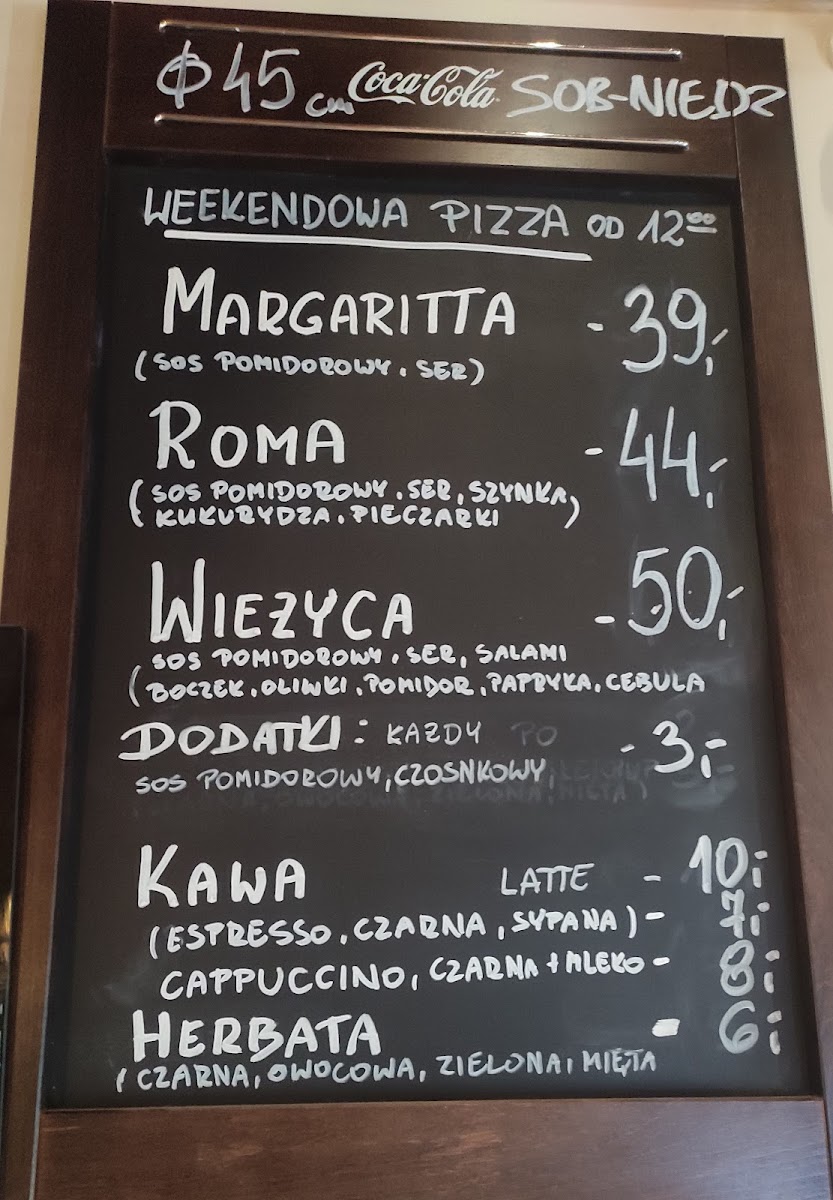 Φ 45 cm Coca-Cola SOB-NIEDZ
WEEKENDOWA PIZZA OD 12⁰⁰
MARGARITTA - 39,-
(SOS POMIDOROWY, SER)
ROMA - 44,-
(SOS POMIDOROWY, SER, SZYNKA,
KUKURYDZA, PIECZARKI)
WIEZYCA - 50,-
SOS POMIDOROWY, SER, SALAMI
(BOCZEK, OLIWKI, POMIDOR, PAPRYKA, CEBULA
DODATKI: KAZDY PO - 3,-
SOS POMIDOROWY, CZOSNKOWY,
KAWA LATTE - 10,-
(ESPRESSO, CZARNA, SYPANA) - 7,-
CAPPUCCINO, CZARNA + MLEKO - 8,-
HERBATA - 6,-
(CZARNA, OWOCOWA, ZIELONA, MIĘTA